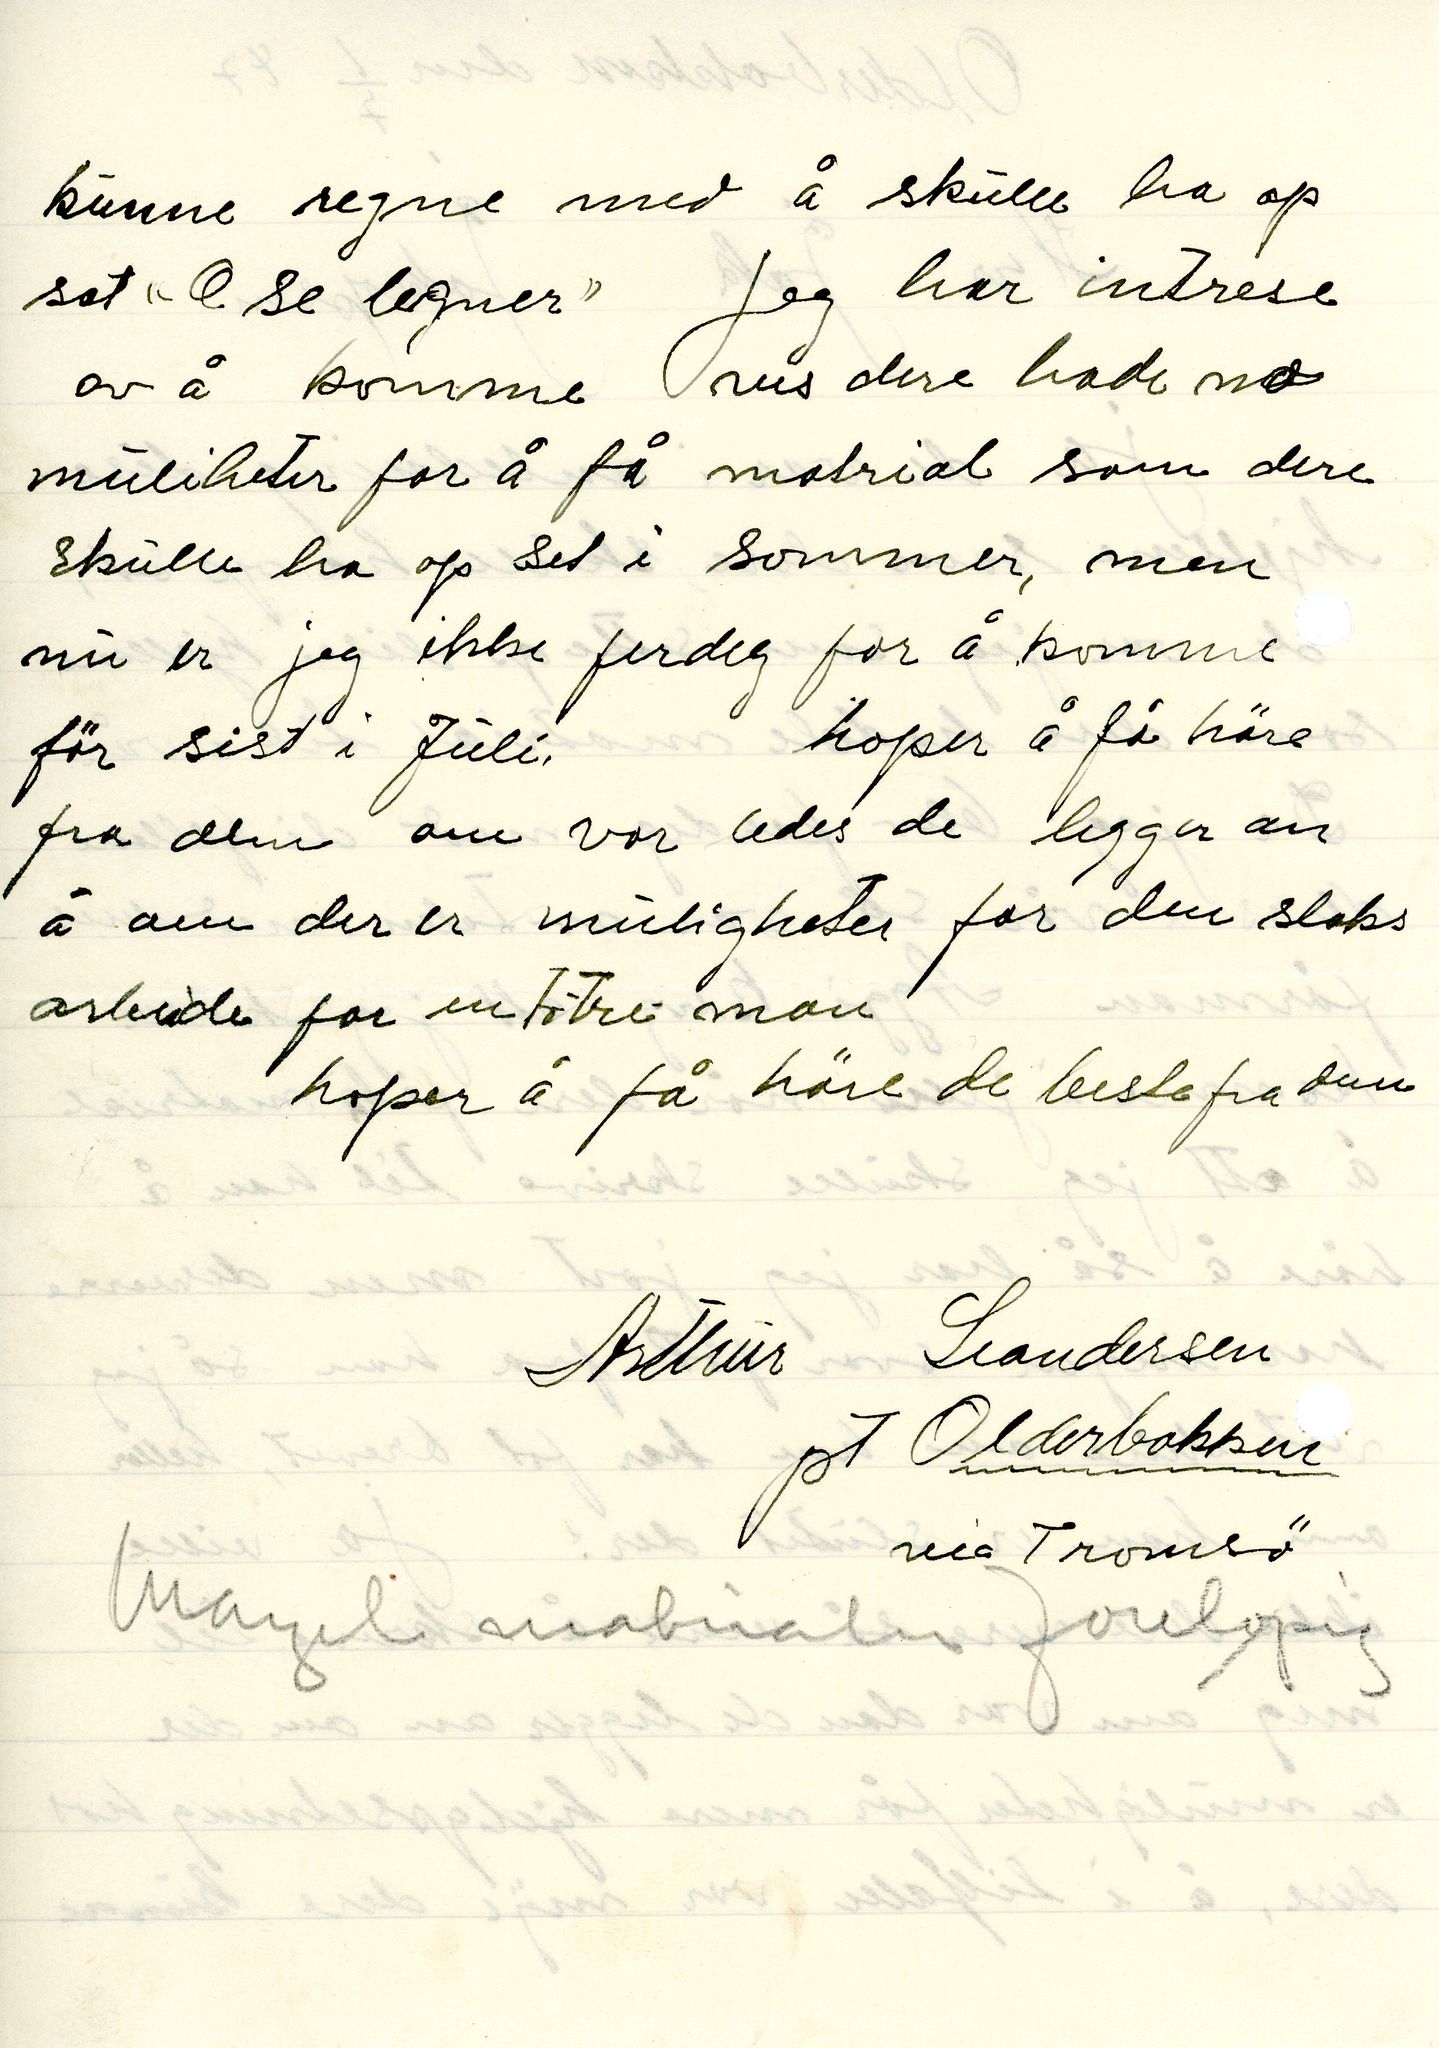 kunne regne med å skulle ha op
sat "O se legner" Jeg har intrese
av å komme vis dere hade no
muliheter for å få matrial som dere
skulle ha op set i sommer, men
nu er jeg ikke ferdeg for å komme
för sist i Juli. hoper å få höre
fra dem om vor ledes de legger an
å om der er muligheter for den slaks
arbeide for en to tre man
hoper å få höre de beste fra dem
Arthur Leandersen
pt Olderbakken
via Tromsö
Mangel materialer forelopig